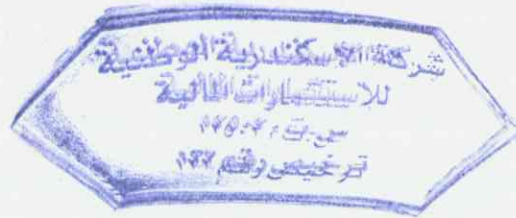 شركة الاسكندرية الوطنية
للاستثمارات المالية
س.ت :
ترخيص رقم ١٣٢